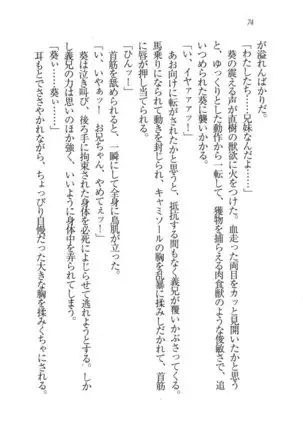 76
が溢れんばかりだ。
「わたしたち……兄妹なんだよ……」
葵の震える声が直樹の獣欲に火をつけた。血走った両目をカッと見開いたかと思う
と、ゆっくりとした動作から一転して、獲物を捕らえる肉食獣のような俊敏さで、追
いつめられた葵に襲いかかる。
「イ、イヤァァァッ！」
あお向けに転がされたかと思うと、抵抗する間もなく義兄が覆いかぶさってくる。
馬乗りになられて動きを封じられ、キャミソールの胸を乱暴に揉みしだかれて、首筋
に唇が押し当てられる。
「ひんッ！」
首筋を舐められると、一瞬にして全身に鳥肌が立った。
「い、いやぁッ！　お兄ちゃん、やめてぇッ！」
葵は泣き叫び、後ろ手に拘束された身体を必死によじらせて逃れようとする。しか
し義兄の力は思いのほか強く、いいように身体中を弄られてしまう。
「葵……葵……」
耳もとでささやかれながら、ちょっぴり自慢だった大きな胸を揉みくちゃにされる。